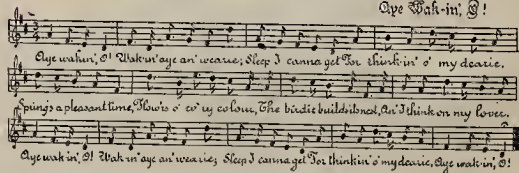 Aye Wak-in', O!
Aye wakin', O! Wak-in' aye an' wearie; Sleep I canna get For thinkin' o' my dearie.
Spring's a pleasant time, Flow'rs o' ev'ry colour, The birdie builds its nest, An' I think on my lover.
Aye wak-in', O! Wak-in' aye an' wearie; Sleep I canna get For thinkin' o' my dearie, Aye wak-in', O!